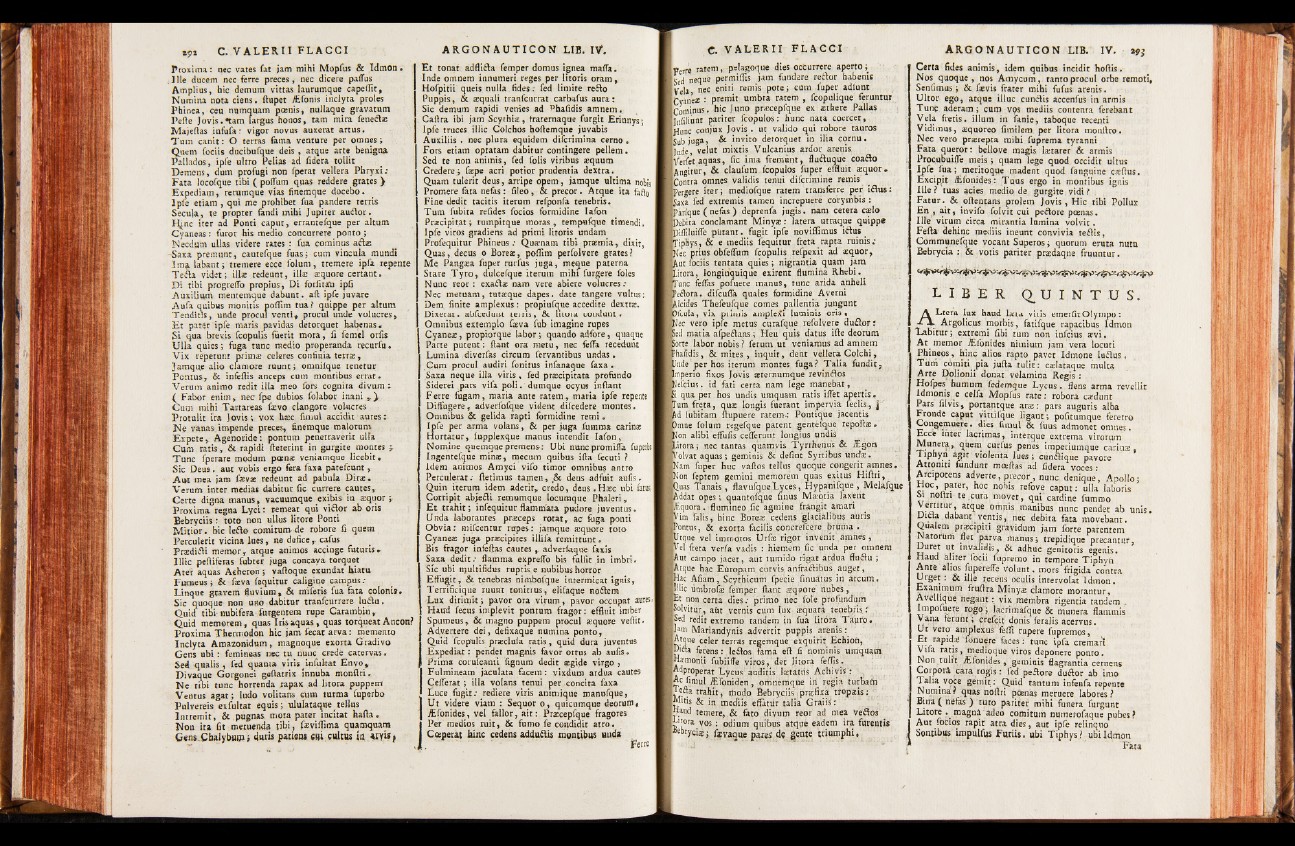 292 C. VALERII FLACCI
Proxima: nec vates sat jam mihi Mopsus & Idmon.
Ille ducem nec ferre preces, nec dicere passus
Amplius, hic demum vittas laurumque capessit,
Numina nota ciens. stupet Æsonis inclyta proles
Phinea, ceu numquam pœnis, nullaque gravatum
Peste Jovis. tam largus honos, tam mira senectæ
Majestas infusa: vigor novus auxerat artus.
Tum canit: O terras fama venture per omnes;
Quem sociis ducibusque deis, atque arte benigna
Pallados, ipse ultro Pelias ad sidera tollit
Demens, dum profugi non sperat vellera Phryxi:
Fata locosque tibi (possum quas reddere grates)
Expediam, rerumque vias finemque docebo.
Ipse etiam, qui me prohibet sua pandere terris
Secula, te propter fandi mihi Jupiter auctor.
Hinc iter ad Ponti caput, errantesque per altum
Cyaneas: furor his medio concurrere ponto;
Necdum ullas videre rates: sua cominus actæ
Saxa premunt, cautesque suas; cum vincula mundi
Ima labant; tremere ecce solum, tremere ipsa repente
Tecta videt: illæ redeunt, illæ æquore certant.
Di tibi progresso propius, Di forsitan ipsi
Auxilium mentemque dabunt. ast ipse juvare
Ausa quibus monitis possim tua? quippe per altum
Tenditis, unde procul venti, procul unde volucres,
Et pater ipse maris pavidas detorquet habenas.
Si qua brevis scopulis fuerit mora, si semel orsis
Ulla quies; fuga tunc medio properanda recursu.
Vix repetunt primæ celeres confinia terræ,
Jamque alio clamore ruunt; omnisque tenetur
Pontus, & infestis anceps cum montibus errat.
Verum animo redit illa meo sors cognita divum:
(Fabor enim, nec spe dubios solabor inani,)
Cum mihi Tartareas sævo clangore volucres
Protulit ira Jovis; vox hæc simul accidit aures:
Ne vanas impende preces, finemque malorum
Expete, Agenoride: pontum penetraverit ulla
Cum ratis, & rapidi steterint in gurgite montes;
Tunc sperare modum pœnæ veniamque licebit.
Sic Deus. aut vobis ergo fera saxa patescunt,
Aut mea jam sævæ redeunt ad pabula Diræ.
Verum inter medias dabitur sic currere cautes,
Certe digna manus, vacuumque exibis in æquor;
Proxima regna Lyci: remeat qui victor ab oris
Bebryciis: toto non ullus litore Ponti
Mitior. hic lecto comitum de robore si quem
Perculerit vicina lues, ne defice, casus
Prædicti memor, atque animos accinge futuris.
Illic pestiferas subter juga concava torquet
Ater aquas Acheron; vastoque exundat hiatu
Fumeus; & sæva sequitur caligine campus:
Linque gravem fluvium, & miseris sua fata colonis.
Sic quoque non uno dabitur transcurrere luctu.
Quid tibi nubifera surgentem rupe Carambin,
Quid memorem, quas Iris aquas, quas torqueat Ancon?
Proxima Thermodon hic jam secat arva: memento
Inclyta Amazonidum, magnoque exorta Gradivo
Gens ubi: femineas nec tu nunc crede catervas.
Sed qualis, sed quanta viris insultat Enyo,
Divaque Gorgonei gestatrix innuba monstri.
Ne tibi tunc horrenda rapax ad litora puppem
Ventus agat; ludo volitans cum turma superbo
Pulvereis exsultat equis; ululataque tellus
Intremit, & pugnas mota pater incitat hasta.
Non ita sit metuenda tibi, sævissima quamquam
Gens Chalybum; duris patiens cui cultus in arvis,
ARGONAUTICON LIB. IV.
Et tonat adflicta semper domus ignea massa.
Inde omnem innumeri reges per litoris oram,
Hospitii queis nulla fides: sed limite recto
Puppis, & æquali transcurrat carbasus aura:
Sic demum rapidi venies ad Phasidis amnem.
Castra ibi jam Scythiæ, fraternaque surgit Erinnys;
Ipse truces illic Colchos hostemque juvabis
Auxiliis. nec plura equidem discrimina cerno.
Fors etiam optatam dabitur contingere pellem.
Sed te non animis, sed solis viribus æquum
Credere; sæpe acri potior prudentia dextra.
Quam tulerit deus, arripe opem, jamque ultima nobis
Promere fata nefas: sileo, & precor. Atque ita facto
Fine dedit tacitis iterum responsa tenebris.
Tum subita resides socios formidine Iason
Præcipitat; rumpitque moras, tempusque timendi.
Ipse viros gradiens ad primi litoris undam
Prosequitur Phineus: Quænam tibi præmia, dixit,
Quas, decus o Boreæ, possim persolvere grates?
Me Pangæa super rursus juga, meque paterna
Stare Tyro, dulcesque iterum mihi surgere soles
Nunc reor: exactæ nam vere abiere volucres:
Nec metuam, tutæque dapes. date tangere vultus;
Dem sinite amplexus: propiusque accedite dextræ.
Dixerat. abscedunt terris, & litora condunt.
Omnibus extemplo sæva sub imagine rupes
Cyaneæ, propiorque labor; quando adfore, quaque
Parte putent: stant ora metu, nec fessa recedunt
Lumina diversas circum servantibus undas.
Cum procul auditi sonitus insanaque saxa.
Saxa neque illa viris, sed præcipitata profundo
Siderei pars visa poli. dumque ocyus instant
Ferre fugam, maria ante ratem, maria ipse repente
Diffugere, adversosque vident discedere montes.
Omnibus & gelida rapti formidine remi.
Ipse per arma volans, & per juga summa carinæ
Hortatur, supplexque manus intendit Iason,
Nomine quemque premens: Ubi nunc promissa superba
Ingentesque minæ, mecum quibus ista secuti?
Idem animos Amyci viso timor omnibus antro
Perculerat: stetimus tamen, & deus adfuit ausis.
Quin iterum idem aderit, credo, deus. Hæc ubi fatus
Corripit abjecti remumque locumque Phaleri,
Et trahit; insequitur flammata pudore juventus.
Unda laborantes præceps rotat, ac fuga ponti
Obvia: miscentur rupes: jamque æquore toto
Cyaneæ juga præcipites illisa remittunt.
Bis fragor infestas cautes, adversaque saxis
Saxa dedit: flamma expresso bis fulsit in imbri.
Sic ubi multifidus ruptis e nubibus horror
Effugit, & tenebras nimbosque intermicat ignis,
Terrificique ruunt tonitrus, elisaque noctem
Lux dirimit; pavor ora virum, pavor occupat aures.
Haud secus implevit pontum fragor: effluit imber
Spumeus, & magno puppem procul æquore vestit.
Advertere dei, defixaque numina ponto,
Quid scopulis præclusa ratis, quid dura juventus
Expediat: pendet magnis favor ortus ab ausis.
Prima coruscanti signum dedit ægide virgo,
Fulmineam jaculata facem: vixdum ardua cautes
Cesserat; illa volans tenui per concita saxa
Luce fugit: rediere viris animique manusque,
Ut videre viam: Sequor o, quicumque deorum,
Æsonides, vel fallor, ait: Præcepsque fragores
Per medios ruit, & fumo se condidit atro.
Cœperat hinc cedens adductis montibus unda
Ferre
C. VALERII FLACCI
Ferre ratem, pelagoque dies occurrere aperto;
Sed neque permissis jam fundere rector habenis
Vela, nec eniti remis pote; cum super adsunt
Cyaneæ: premit umbra ratem, scopulique feruntur
Cominus. hic Juno præcepsque ex æthere Pallas
Insiliunt pariter scopulos: hunc nata coercet,
Hunc conjux Jovis. ut valido qui robore tauros
Sub juga, & invito detorquet in ilia cornu.
Inde, velut mixtis Vulcanius ardor arenis
Verset aquas, sic ima fremunt, fluctuque coacto
Angitur, & clausum scopulos super effluit æquor.
Contra omnes validis tenui discrimine remis
Pergere iter; mediosque ratem transferre per ictus:
Saxa sed extremis tamen increpuere corymbis:
Parsque (nefas) deprensa jugis. nam cetera cælo
Debita conclamant Minyæ: latera utraque quippe
Diffiluisse putant. fugit ipse novissimus ictus
Tiphys, & e mediis sequitur freta rapta ruinis:
Nec prius obsessum scopulis respexit ad æquor,
Aut sociis tentata quies; nigrantia quam jam
Litora, longinquique exirent flumina Rhebi.
Tunc fessas posuere manus, tunc arida anheli
Pectora. discussa quales formidine Averni
Alcides Theseusque comes pallentia jungunt
Oscula, vix primis amplexi luminis oris.
Nec vero ipse metus curasque resolvere ductor:
Sed maria aspectans; Heu quis datus iste deorum
Sorte labor nobis? serum ut veniamus ad amnem
Phasidis, & mites, inquit, dent vellera Colchi,
Unde per hos iterum montes fuga? Talia fundit,
Imperio fixos Jovis æternumque revinctos
Nescius. id fati certa nam lege manebat,
Si qua per hos undis umquam ratis isset apertis.
Tum freta, quæ longis fuerant impervia seclis,
Ad subitam stupuere ratem: Pontique jacentis
Omne solum regesque patent gentesque repostæ.
Non alibi effusis cesserunt longius undis
Litora; nec tantas quamvis Tyrrhenus & Ægon
Volvat aquas; geminis & desint Syrtibus undæ.
Nam super huc vastos tellus quoque congerit amnes.
Non septem gemini memorem quas exitus Histri,
Quas Tanais, flavusque Lyces, Hypanisque, Melasque
Addat opes; quantosque sinus Mæotia laxent
Æquora. flumineo sic agmine frangit amari
Vim salis, hinc Boreæ cedens glacialibus auris
Pontus, & exorta facilis concrescere bruma.
Utque vel immotos Ursæ rigor invenit amnes,
Vel freta versa vadis: hiemem sic unda per omnem
Aut campo jacet, aut tumido riget ardua fluctu;
Atque hac Europam curvis anfractibus auget,
Hac Asiam, Scythicum specie sinuatus in arcum.
Illic umbrosæ semper stant æquore nubes,
Et non certa dies: primo nec sole profundum
Solvitur, aut vernis cum lux æquata tenebris:
Sed redit extremo tandem in sua litora Tauro.
Jam Mariandynis advertit puppis arenis:
Atque celer terras regemque exquirit Echion,
Dicta ferens: lectos fama est si nominis umquam
Hæmonii subiisse viros, det litora fessis.
Adproperat Lycus auditis lætatus Achivis:
Ac simul Æsoniden, omnemque in regia turbam
Tecta trahit, modo Bebryciis præfixa tropæis:
Mitis & in mediis effatur talia Graiis:
Haud temere, & fato divum reor ad mea vectos
Litora vos: odium quibus atque eadem ira furentis
Bebryciæ; sævaque pares de gente triumphi,
ARGONAUTICON LIB. IV. 293
Certa fides animis, idem quibus incidit hostis.
Nos quoque, nos Amycum, tanto procul orbe remoti,
Sensimus; & sævis frater mihi fusus arenis.
Ultor ego, atque illuc cunctis accensus in armis
Tunc aderam; cum vos mediis contenta ferebant
Vela fretis. illum in sanie, taboque recenti
Vidimus, æquoreo similem per litora monstro.
Nec vero præerepta mihi suprema tyranni
Fata queror: bellove magis lætarer & armis
Procubuisse meis; quam lege quod occidit ultus
Ipse sua; meritoque madent quod sanguine cæstus.
Excipit Æsonides: Tuus ergo in montibus ignis
Ille? tuas acies medio de gurgite vidi?
Fatur. & ostentans prolem Jovis, Hic tibi Pollux
En, ait, inviso solvit cui pectore pœnas.
Ille virum circa mirantia lumina volvit.
Festa dehinc mediis ineunt convivia tectis,
Communesque vocant Superos; quorum eruta nutu
Bebrycia: & votis pariter prædaque fruuntur.
LIBER QUINTUS.
ALtera lux haud læta viris emersit Olympo:
Argolicus morbis, fatisque rapacibus Idmon
Labitur; extremi sibi tum non inscius ævi.
At memor Æsonides nimium jam vera locuti
Phineos, hinc alios rapto pavet Idmone luctus.
Tum comiti pia justa tulit: cæsataque multa
Arte Dolionii donat velamina Regis:
Hospes humum sedemque Lycus. flens arma revellit
Idmonis e celsa Mopsus rate: robora cædunt
Pars silvis, portantque aræ: pars auguris alba
Fronde caput vittisque ligant; positumque feretro
Congemuere. dies simul & suus admonet omnes.
Ecce inter lacrimas, interque extrema virorum
Munera, quem cursus penes imperiumque carinæ,
Tiphyn agit violenta lues; cunctique pavore
Attoniti fundunt mœstas ad sidera voces:
Arcipotens adverte, precor, nunc denique, Apollo;
Hoc, pater, hoc nobis refove caput: ulla laboris
Si nostri te cura movet, qui cardine summo
Vertitur, atque omnis manibus nunc pendet ab unis.
Dicta dabant ventis, nec debita fata movebant.
Qualem præcipiti gravidum jam sorte parentem
Natorum flet parva manus; trepidique precantur,
Duret ut invalidis, & adhuc genitoris egenis.
Haud aliter socii supremo in tempore Tiphyn
Ante alios superesse volunt. mors frigida contra
Urget: & ille recens oculis intervolat Idmon.
Exanimum frustra Minyæ clamore morantur,
Avellique negant: vix membra rigentia tandem
Imposuere rogo; lacrimasque & munera flammis
Vana ferunt; crescit donis feralis acervus.
Ut vero amplexus fessi rupere supremos,
Et rapidæ sonuere faces: tunc ipsa cremari
Visa ratis, medioque viros deponere ponto.
Non tulit Æsonides, geminis flagrantia cernens
Corpora cara rogis: sed pectore ductor ab imo
Talia voce gemit: Quid tantum infensa repente
Numina? quas nostri pœnas meruere labores?
Bina (nefas) tuto pariter mihi funera surgunt
Litore. magna adeo comitum numerosaque pubes?
Aut socios rapit atra dies, aut ipse relinquo
Sontibus impulsus Furiis. ubi Tiphys? ubi Idmon
Fata